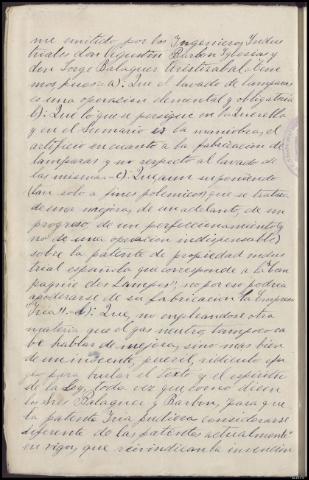 me emitido por los Ingenieros Indus
triales don Agustín Barbon Iglesias y
don Jorge Balaguer Aristizabal. Tene
mos, pues: a): Que el lavado de lamparas
es una operacion elemental y obligatoria
b): Que lo que se persigue en la Querella
y en el Sumario es la maniobra, el
artificio en cuanto a la fabricacion de
lamparas y no respecto al lavado de
las mismas. c): Que aun suponiendo
(tan solo a fines polemicos) que se tratara
de una mejora, de un adelanto, de un
progreso, de un perfeccionamiento (y
no de una operacion indispensable)
sobre la patente de propiedad indus
trial española que corresponde a la "Com
pagnie des Lampes", no por eso podria
apoderarse de su fabricacion la Empresa
"Iria". d): Que, no empleandose otra
materia que el gas neutro, tampoco ca
be hablar de mejora, sino mas bien
de un inocente, pueril, ridiculo
para burlar el texto y el espiritu
de la Ley, toda vez que como dicen
los Sres Balaguer y Barbon, para que
la patente Iria pudiera considerarse
diferente de las patentes actualmente
en vigor, que reivindican la invencion